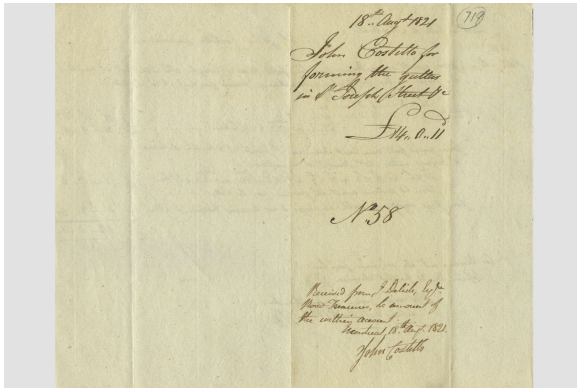 18th Augt 1821
719
John Costello for
forming the gutters
in St Joseph Street &c
£14.. 0.. 11
No 58
Received from J Delisle, Esqr
Road Treasurer, the amount of
the within account
Montreal, 18th Augt 1821
John Costello